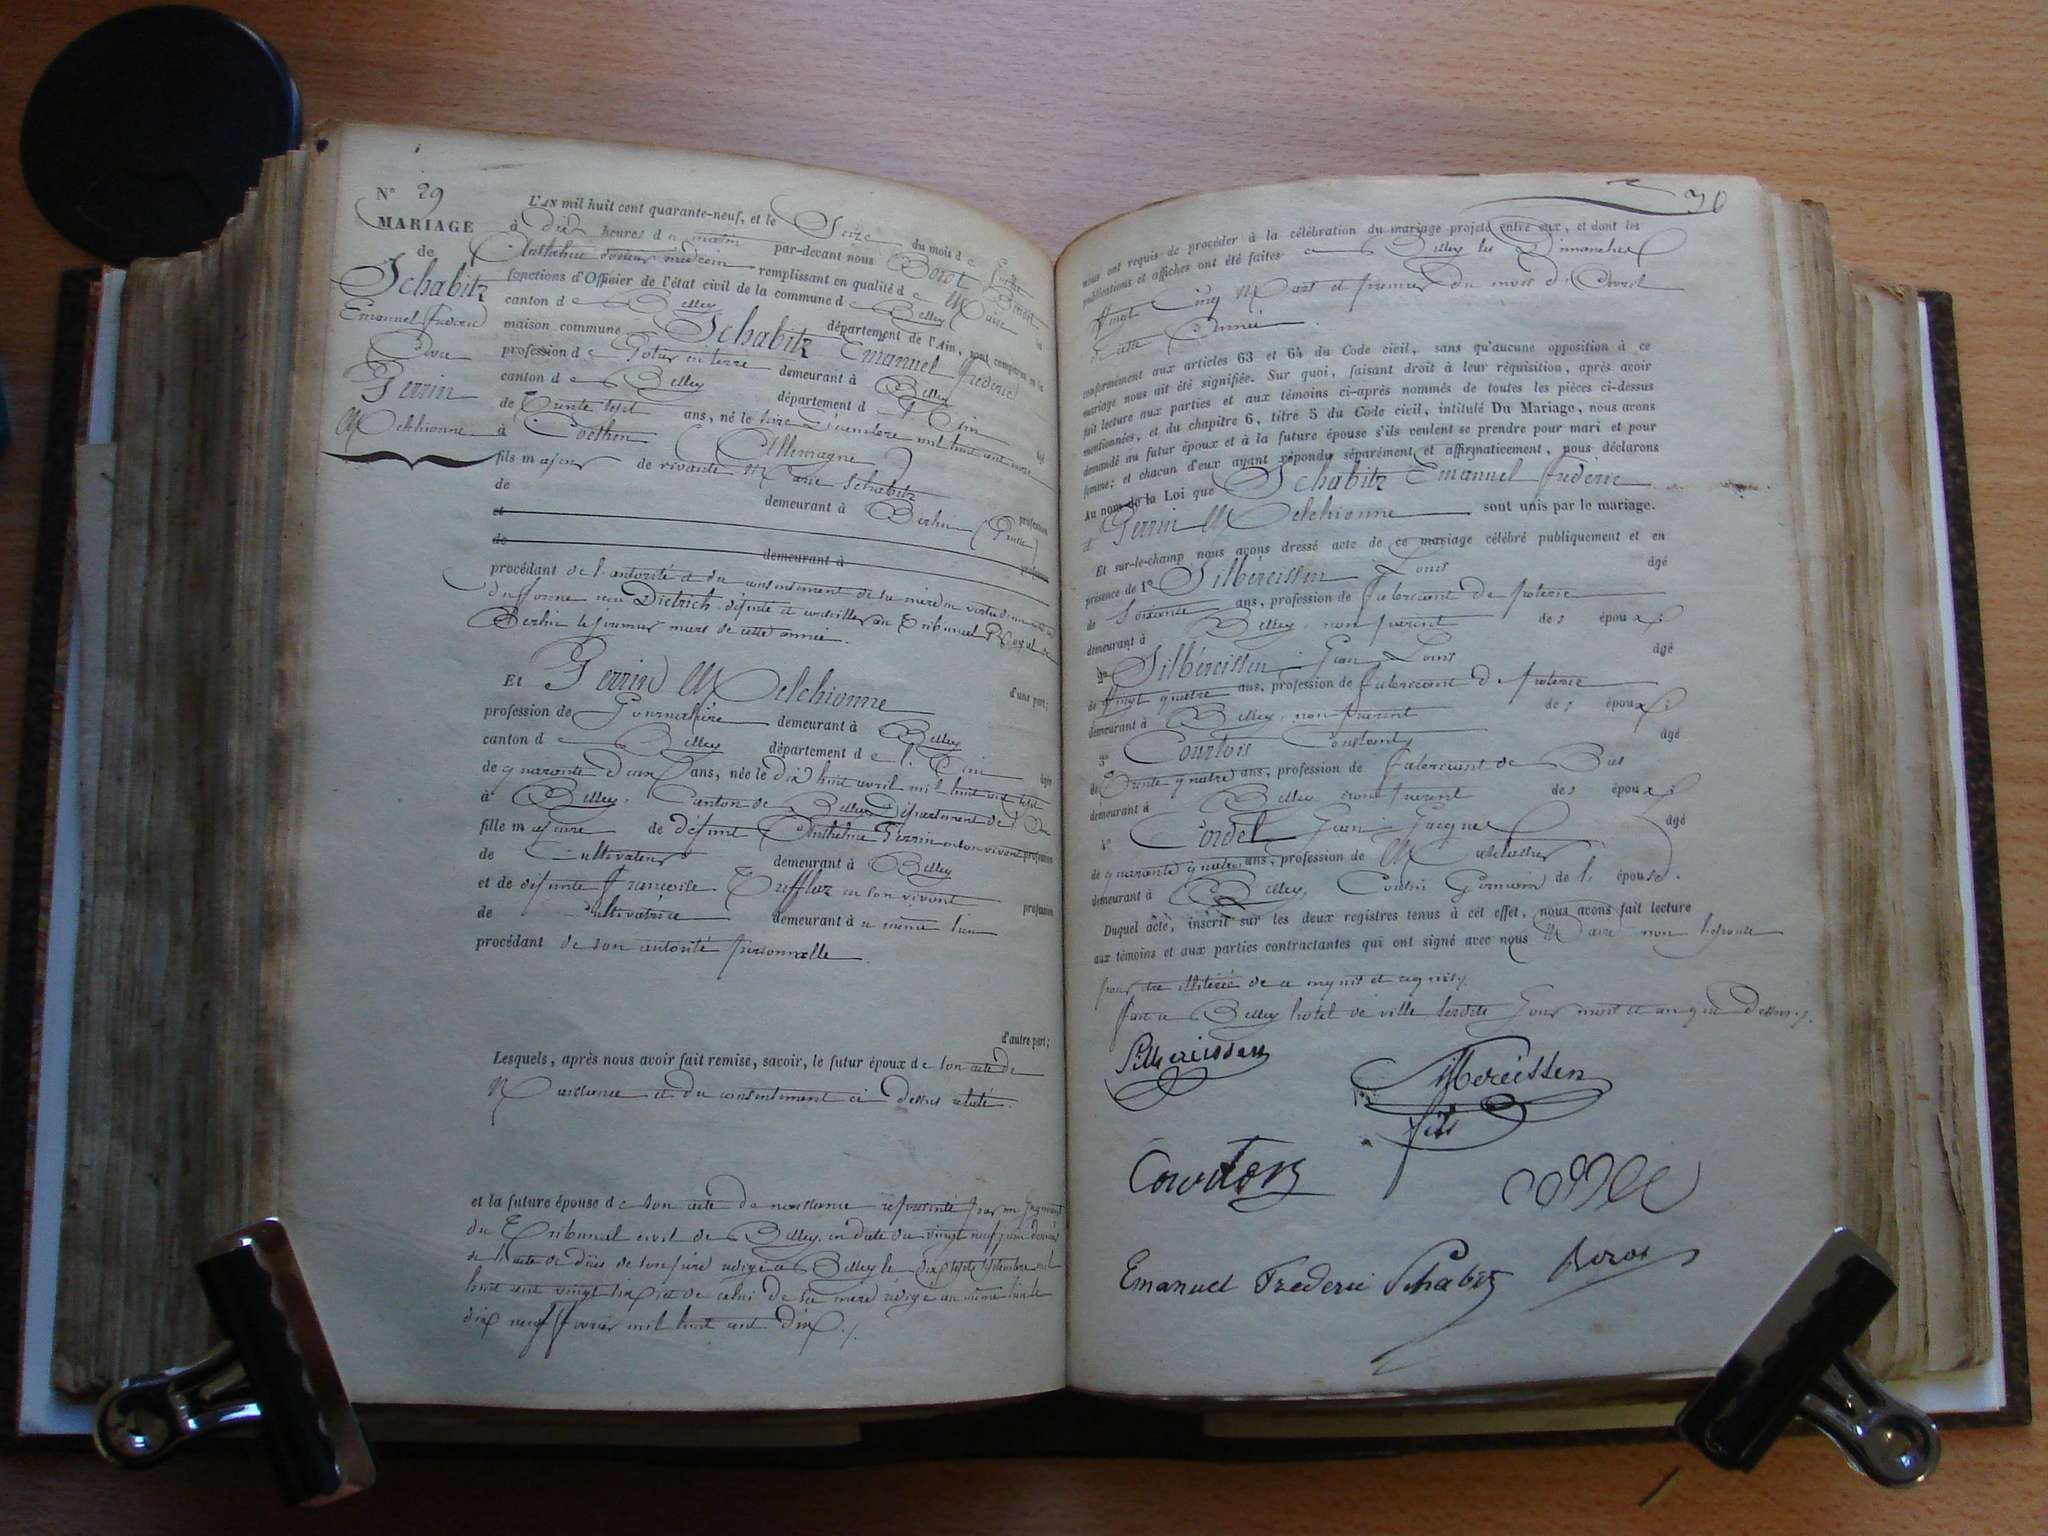 N° 29
MARIAGE
de
Schabitz
Emanuel Frederic
Avec
Perrin
Melchionne
L'AN mil huit cent quarante-neuf, et le Seize du mois de Juillet
à dix heures du matin par-devant nous Borot Benoit
Anthelme docteur médecin remplissant en qualité de Maire les
fonctions d'Officier de l'état civil de la commune de Belley
canton de Belley département de l'Ain, sont comparus en la
maison commune Schabitz Emanuel Frederic
profession de Potier en terre demeurant à Belley
canton de Belley département de l'Ain
de trente sept ans, né le seize mil huit cent onze
à Coethen (Allemagne)
fils majeur de vivante Marie Schabitz
de demeurant à Berlin (Prusse) profession
et
de demeurant à profession
procédant de l'autorité et du consentement de sa mère en vertu
Dietrich député et conseiller au Tribunal Royal de
Berlin le premier mars de cette année.
d'une part;
Et Perrin Melchionne
profession de Journalière demeurant à Belley
canton de Belley département de l'Ain âgée
de quarante deux ans, née le dix huit avril mil huit cent sept
à Belley, Canton de Belley Département de l'Ain
fille majeure de défunt Anthelme Perrin en son vivant profession
de Cultivateur demeurant à Belley
et de défunte Francoise Truffloz en son vivant profession
de cultivatrice demeurant à u même lieu
procédant de son autorité personnelle.
d'autre part;
Lesquels, après nous avoir fait remise, savoir, le futur époux de son acte de
Naissance et du consentement ci dessus relaté.
et la future épouse de son acte de naissance par un jugement
du Tribunal civil de Belley, en date du vingt neuf juin dernier
de l'acte de décès de son père rédigé à Belley le dix sept septembre mil
huit cent vingt six et de celui de sa mère rédigé au même lieu le
dix neuf février mil huit cent dix./.
30
nous ont requis de procéder à la célébration du mariage projeté entre eux, et dont les
publications et affiches ont été faites à Belley les Dimanches
vingt Cinq Mars et premier du mois d'Avril
de cette Année.
conformément aux articles 63 et 64 du Code cicil, sans qu'aucune opposition à ce
mariage nous ait été signifiée. Sur quoi, faisant droit à leur réquisition, après avoir
fait lecture aux parties et aux témoins ci-après nommés de toutes les pièces ci-dessus
mentionnées, et du chapitre 6, titre 5 du Code civil, intitulé Du Mariage, nous avons
demandé au futur époux et à la future épouse s'ils veulent se prendre pour mari et pour
femme; et chacun d'eux ayant répondu séparément et affirmativement, nous déclarons
Au nom de la Loi que Schabitz Emanuel Frédéric
et Perrin Melchionne sont unis par le mariage.
Et sur-le-champ nous avons dressé acte de ce mariage célébré publiquement et en
présence de 1° Silbereissen Louis âgé
de Soixante ans, profession de fabricant de poterie
demeurant à Belley, non parent des époux;
2° Silbéreissen Jean Louis âgé
de vingt quatre ans, profession de fabricant de poterie
demeurant à Belley, non parent des époux;
3° Courtois Constant âgé
de Trente quatre ans, profession de fabricant de Bas
demeurant à Belley non parent des époux;
4° Cordel Jean Jacques âgé
de quarante quatre ans, profession de
demeurant à Belley, Cousin Germain de l'épouse.
Duquel acte, inscrit sur les deux registres tenus à cet effet, nous avons fait lecture
aux témoins et aux parties contractantes qui ont signé avec nous Maire non l'épouse
pour être illitérée de ce enquis et requis.
fait à Belley hôtel de ville lesdits Jour mois et an que Dessus.
Silbereissen
Silbereissen
fils
Courtois
Emanuel Frederic Schabitz
Borot